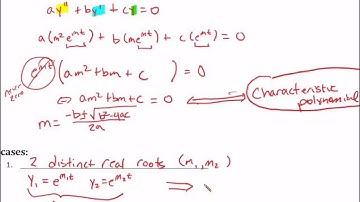 ay" + by' + cy = 0
a(m²e^{mt}) + b(me^{mt}) + c(e^{mt}) = 0
never zero
e^{mt} (am² + bm + c) = 0
⇔ am² + bm + c = 0
Characteristic polynomial
m = \frac{-b ± \sqrt{b² - 4ac}}{2a}
cases:
1. 2 distinct real roots (m₁, m₂)
y₁ = e^{m₁t} y₂ = e^{m₂t} ⇒